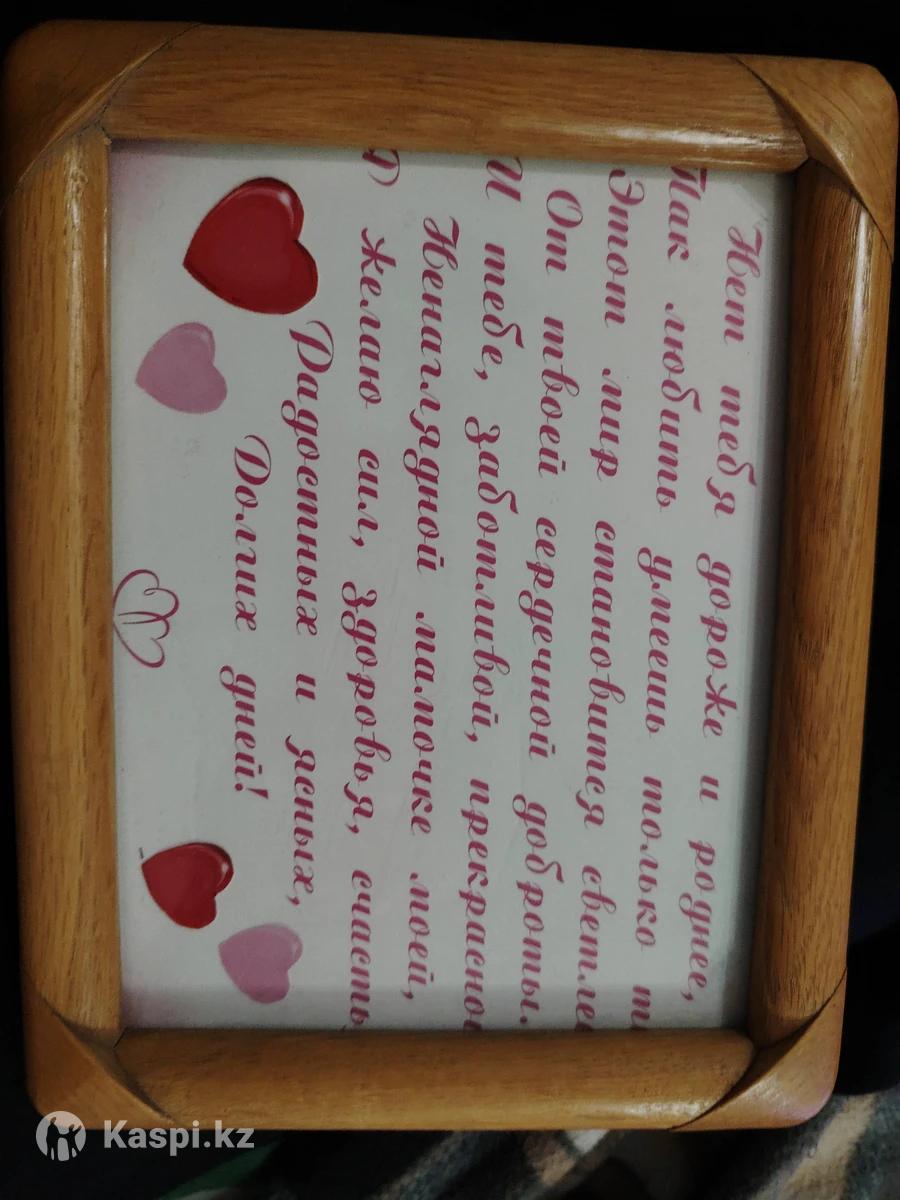 Нет тебя дороже и роднее,
Так любить умеешь только т
Этот мир становится светле
От твоей сердечной доброты.
И тебе, заботливой, прекрасно
Ненаглядной мамочке моей,
Я желаю сил, здоровья, счасть
Радостных и ясных,
Долгих дней!
Kaspi.kz